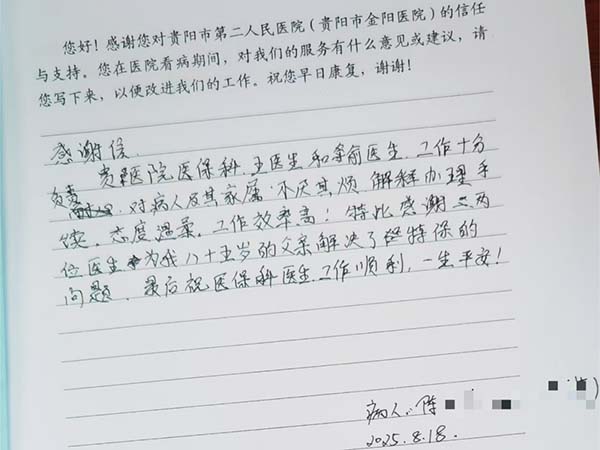 您好！感谢您对贵阳市第二人民医院（贵阳市金阳医院）的信任
与支持。您在医院看病期间，对我们的服务有什么意见或建议，请
您写下来，以便改进我们的工作。祝您早日康复，谢谢！
感谢信
贵医院医保科王医生和 前医生.工作十分
负责 .对病人及其家属.不厌其烦解释办理手
续.态度温柔.工作效率高！特此感谢二两
位医生为我八十五岁的父亲解决了 特保的
问题.最后祝医保科医生工作顺利,一生平安！
病人:陈
2025.8.18.